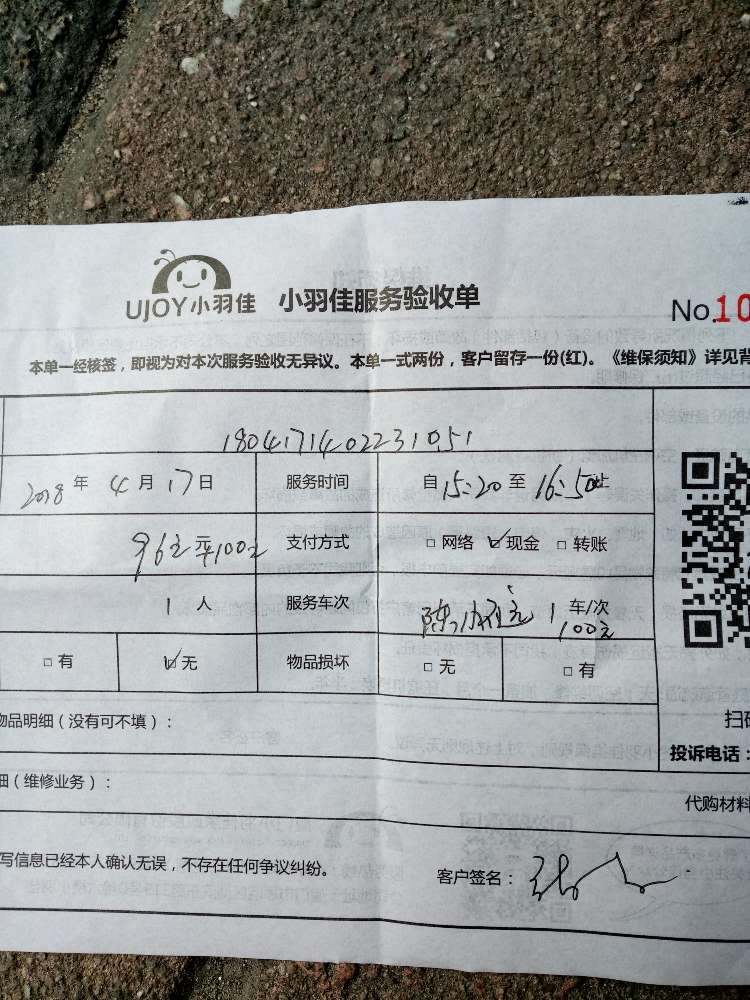 UJOY小羽佳 小羽佳服务验收单
No.10
本单一经核签，即视为对本次服务验收无异议。本单一式两份，客户留存一份(红)。《维保须知》详见背
1804171402231051
2018年4月17日 服务时间 自15:20至16:50止
96元 平100元 支付方式 □网络 ☑现金 □转账
1人 服务车次 1车/次
100元
□有 ☑无 物品损坏 □无 □有
物品明细（没有可不填）：
扫码
投诉电话：
细（维修业务）：
代购材料
写信息已经本人确认无误，不存在任何争议纠纷。
客户签名：